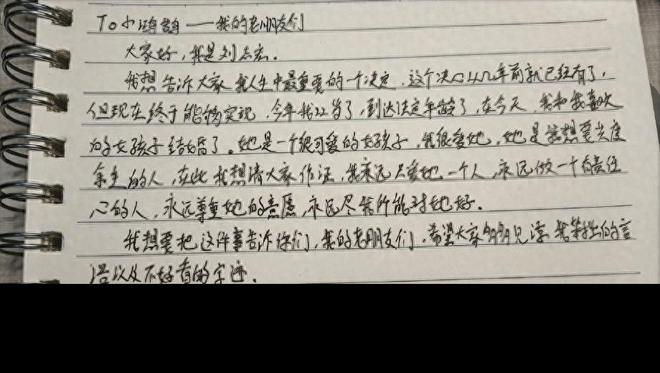 To小鹌鹑——我的老朋友们
大家好，我是刘志宏。
我想告诉大家我人生中最重要的一个决定，这个决心几年前就已经有了，
但现在终于能够实现，今年我22岁了，到达法定年龄了，在今天我和我喜欢
的女孩子结婚了。她是一个很可爱的女孩子，我很爱她，她是我想要共度
余生的人，在此我想请大家作证，我永远只爱她一个人，永远做一个有责任
心的人，永远尊重她的意愿，永远尽我所能对她好。
我想要把这件事告诉你们，我的老朋友们，希望大家多多见谅我笨拙的言
语以及不好看的字迹。